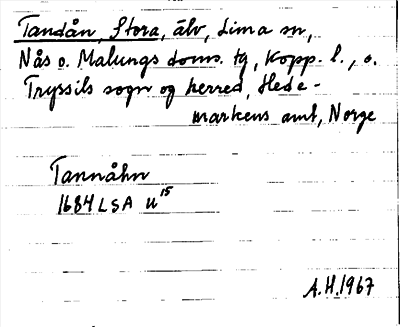 Tandån, Stora, älv, Lima sn,
Nås o. Malungs doms. tg, Kopp. l., o.
Tryssils sogn og herred, Hede-
markens amt, Norge
Tannåhn
1684 LSA U 15
A.H. 1967